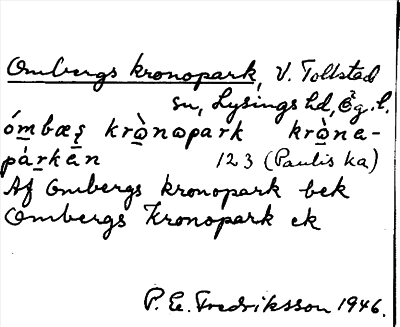 Ombergs kronopark, V. Tollstad
sn, Lysings hd, Ög. l.
ómbæș krò̱nopark krò̱na-
pàrkän 123 (Paulis ka)
Af Ombergs kronopark bek
Ombergs Kronopark ek
P. E. Fredriksson 1946.